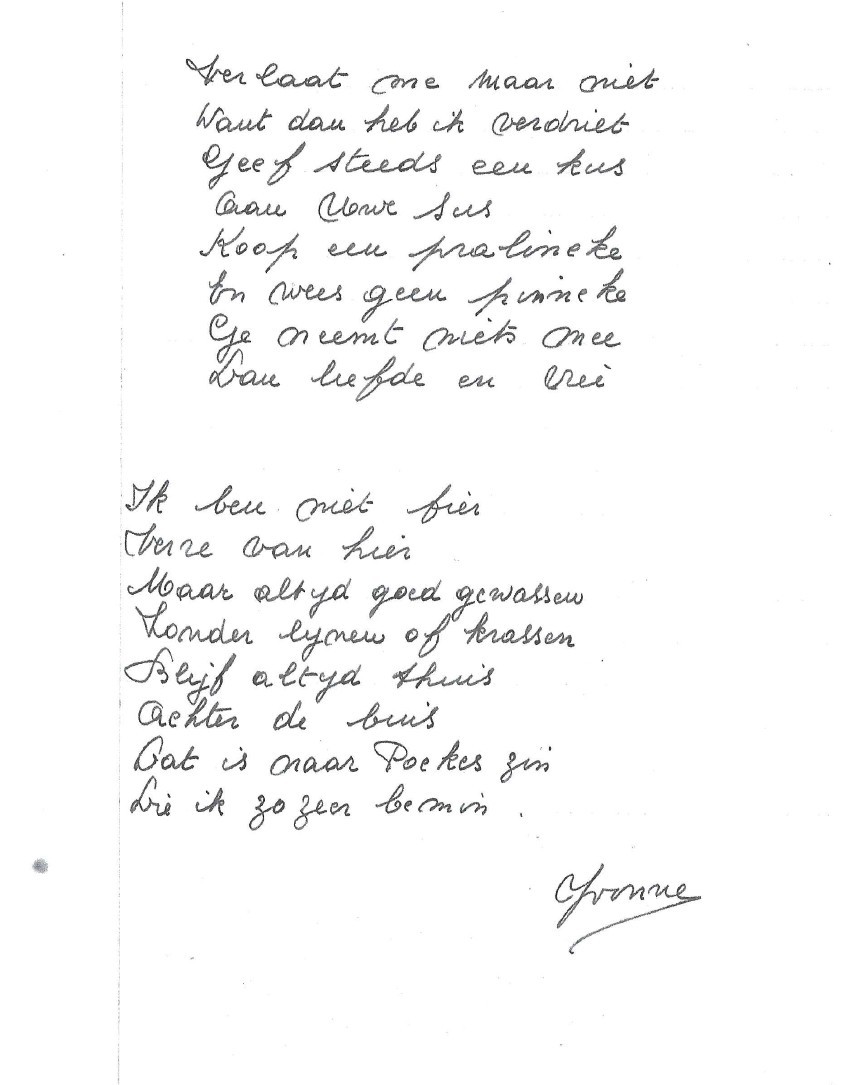 Verlaat me maar niet
Want dan heb ik verdriet
Geef steeds een kus
Aan Uwe Sus
Koop een pralineke
En wees geen pinneke
Ge neemt niets mee
Dan liefde en vree
Ik ben niet fier
Verre van hier
Maar altyd goed gewassen
Zonder lynen of krassen
Blijf altyd thuis
Achter de buis
Dat is naar Poekes zin
Die ik zo zeer bemin .
Yvonne